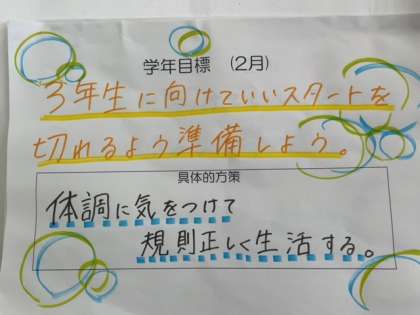 学年目標 (2月)
3年生に向けていいスタートを
切れるよう準備しよう。
具体的方策
体調に気をつけて
規則正しく生活する。